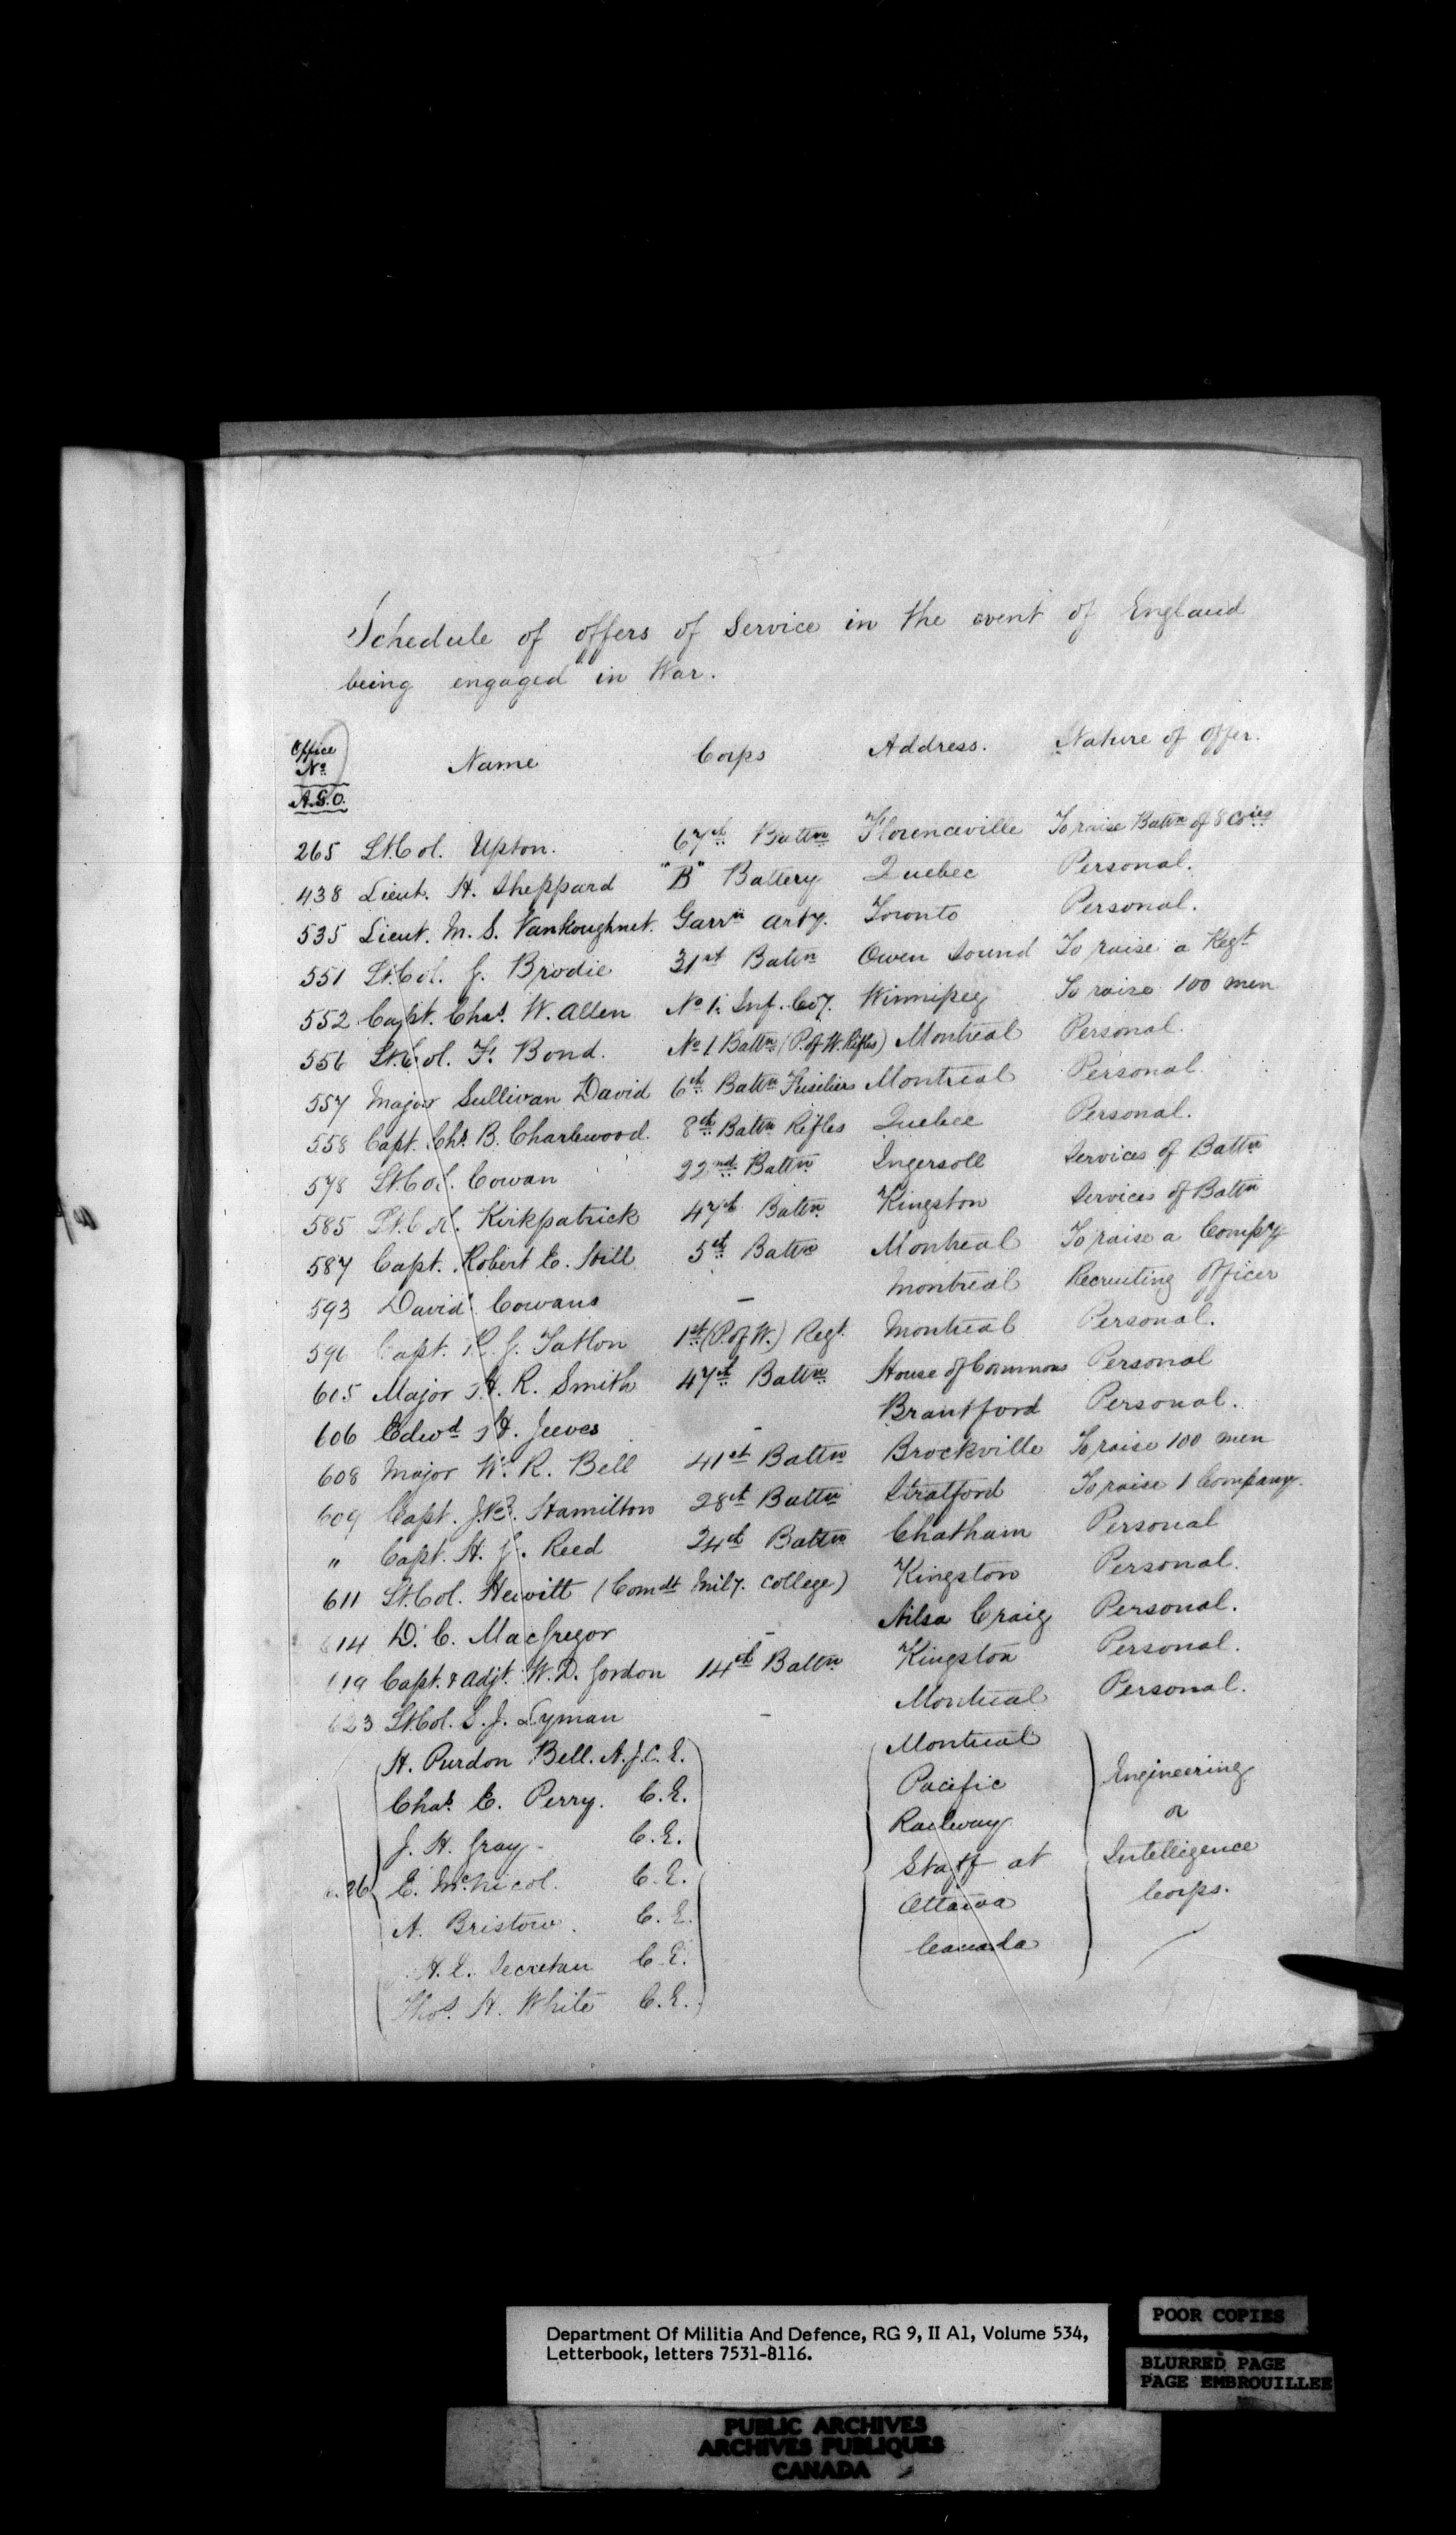 Schedule of offers of Service in the event of England
being engaged in War.
Office No. A.G.O. Name Corps Address. Nature of Offer.
265 Lt.Col. Upton. 67th Battn Florenceville To raise Battn of 8 Coies
438 Lieut. H. Sheppard "B" Battery Quebec Personal.
535 Lieut. M. S. Vankoughnet. Garrn Arty. Toronto Personal.
551 Lt.Col. J. Brodie 31st Battn Owen Sound To raise a Regt
552 Capt. Chas. W. Allen No 1. Inf. Coy. Winnipeg To raise 100 men
556 Lt.Col. F. Bond. No 1 Battn (P. of W. Rifles) Montreal Personal.
557 Major Sullivan David 6th Battn Fusiliers Montreal Personal.
558 Capt. Chs. B. Charlewood. 8th Battn Rifles Quebec Personal.
578 Lt.Col. Cowan 22nd Battn Ingersoll Services of Battn
585 Lt.Col. Kirkpatrick 47th Battn Kingston Services of Battn
587 Capt. Robert C. Hill 5th Battn Montreal To raise a Compy
593 David Cowans - Montreal Recruiting Officer
596 Capt. R. J. Tatlon 1st (P. of W.) Regt. Montreal Personal.
605 Major H. R. Smith 47th Battn House of Commons Personal
606 Edwd H. Jeeves - Brantford Personal.
608 Major W. R. Bell 41st Battn Brockville To raise 100 men
609 Capt. Hamilton 28th Battn Stratford To raise 1 Company.
" Capt. H. J. Reed 24th Battn Chatham Personal
611 Lt.Col. Hewitt (Comdt Mily. College) Kingston Personal.
614 D. C. MacGregor - Ailsa Craig Personal.
619 Capt. & Adjt. W. D. Gordon 14th Battn Kingston Personal.
623 Lt.Col. S. J. Lyman - Montreal Personal.
H. Purdon Bell. A.J.C.E. Montreal
Chas. E. Perry. C.E. Pacific Engineering
J. H. Gray - C.E. Railway or
26 E. McNicol. C.E. Staff at Intelligence
A. Bristow. C.E. Ottawa Corps.
H. E. Secretan C.E. Canada
Thos. H. White C.E.
Department Of Militia And Defence, RG 9, II A1, Volume 534,
Letterbook, letters 7531-8116.
POOR COPIES
BLURRED PAGE
PAGE EMBROUILLEE
PUBLIC ARCHIVES
ARCHIVES PUBLIQUES
CANADA